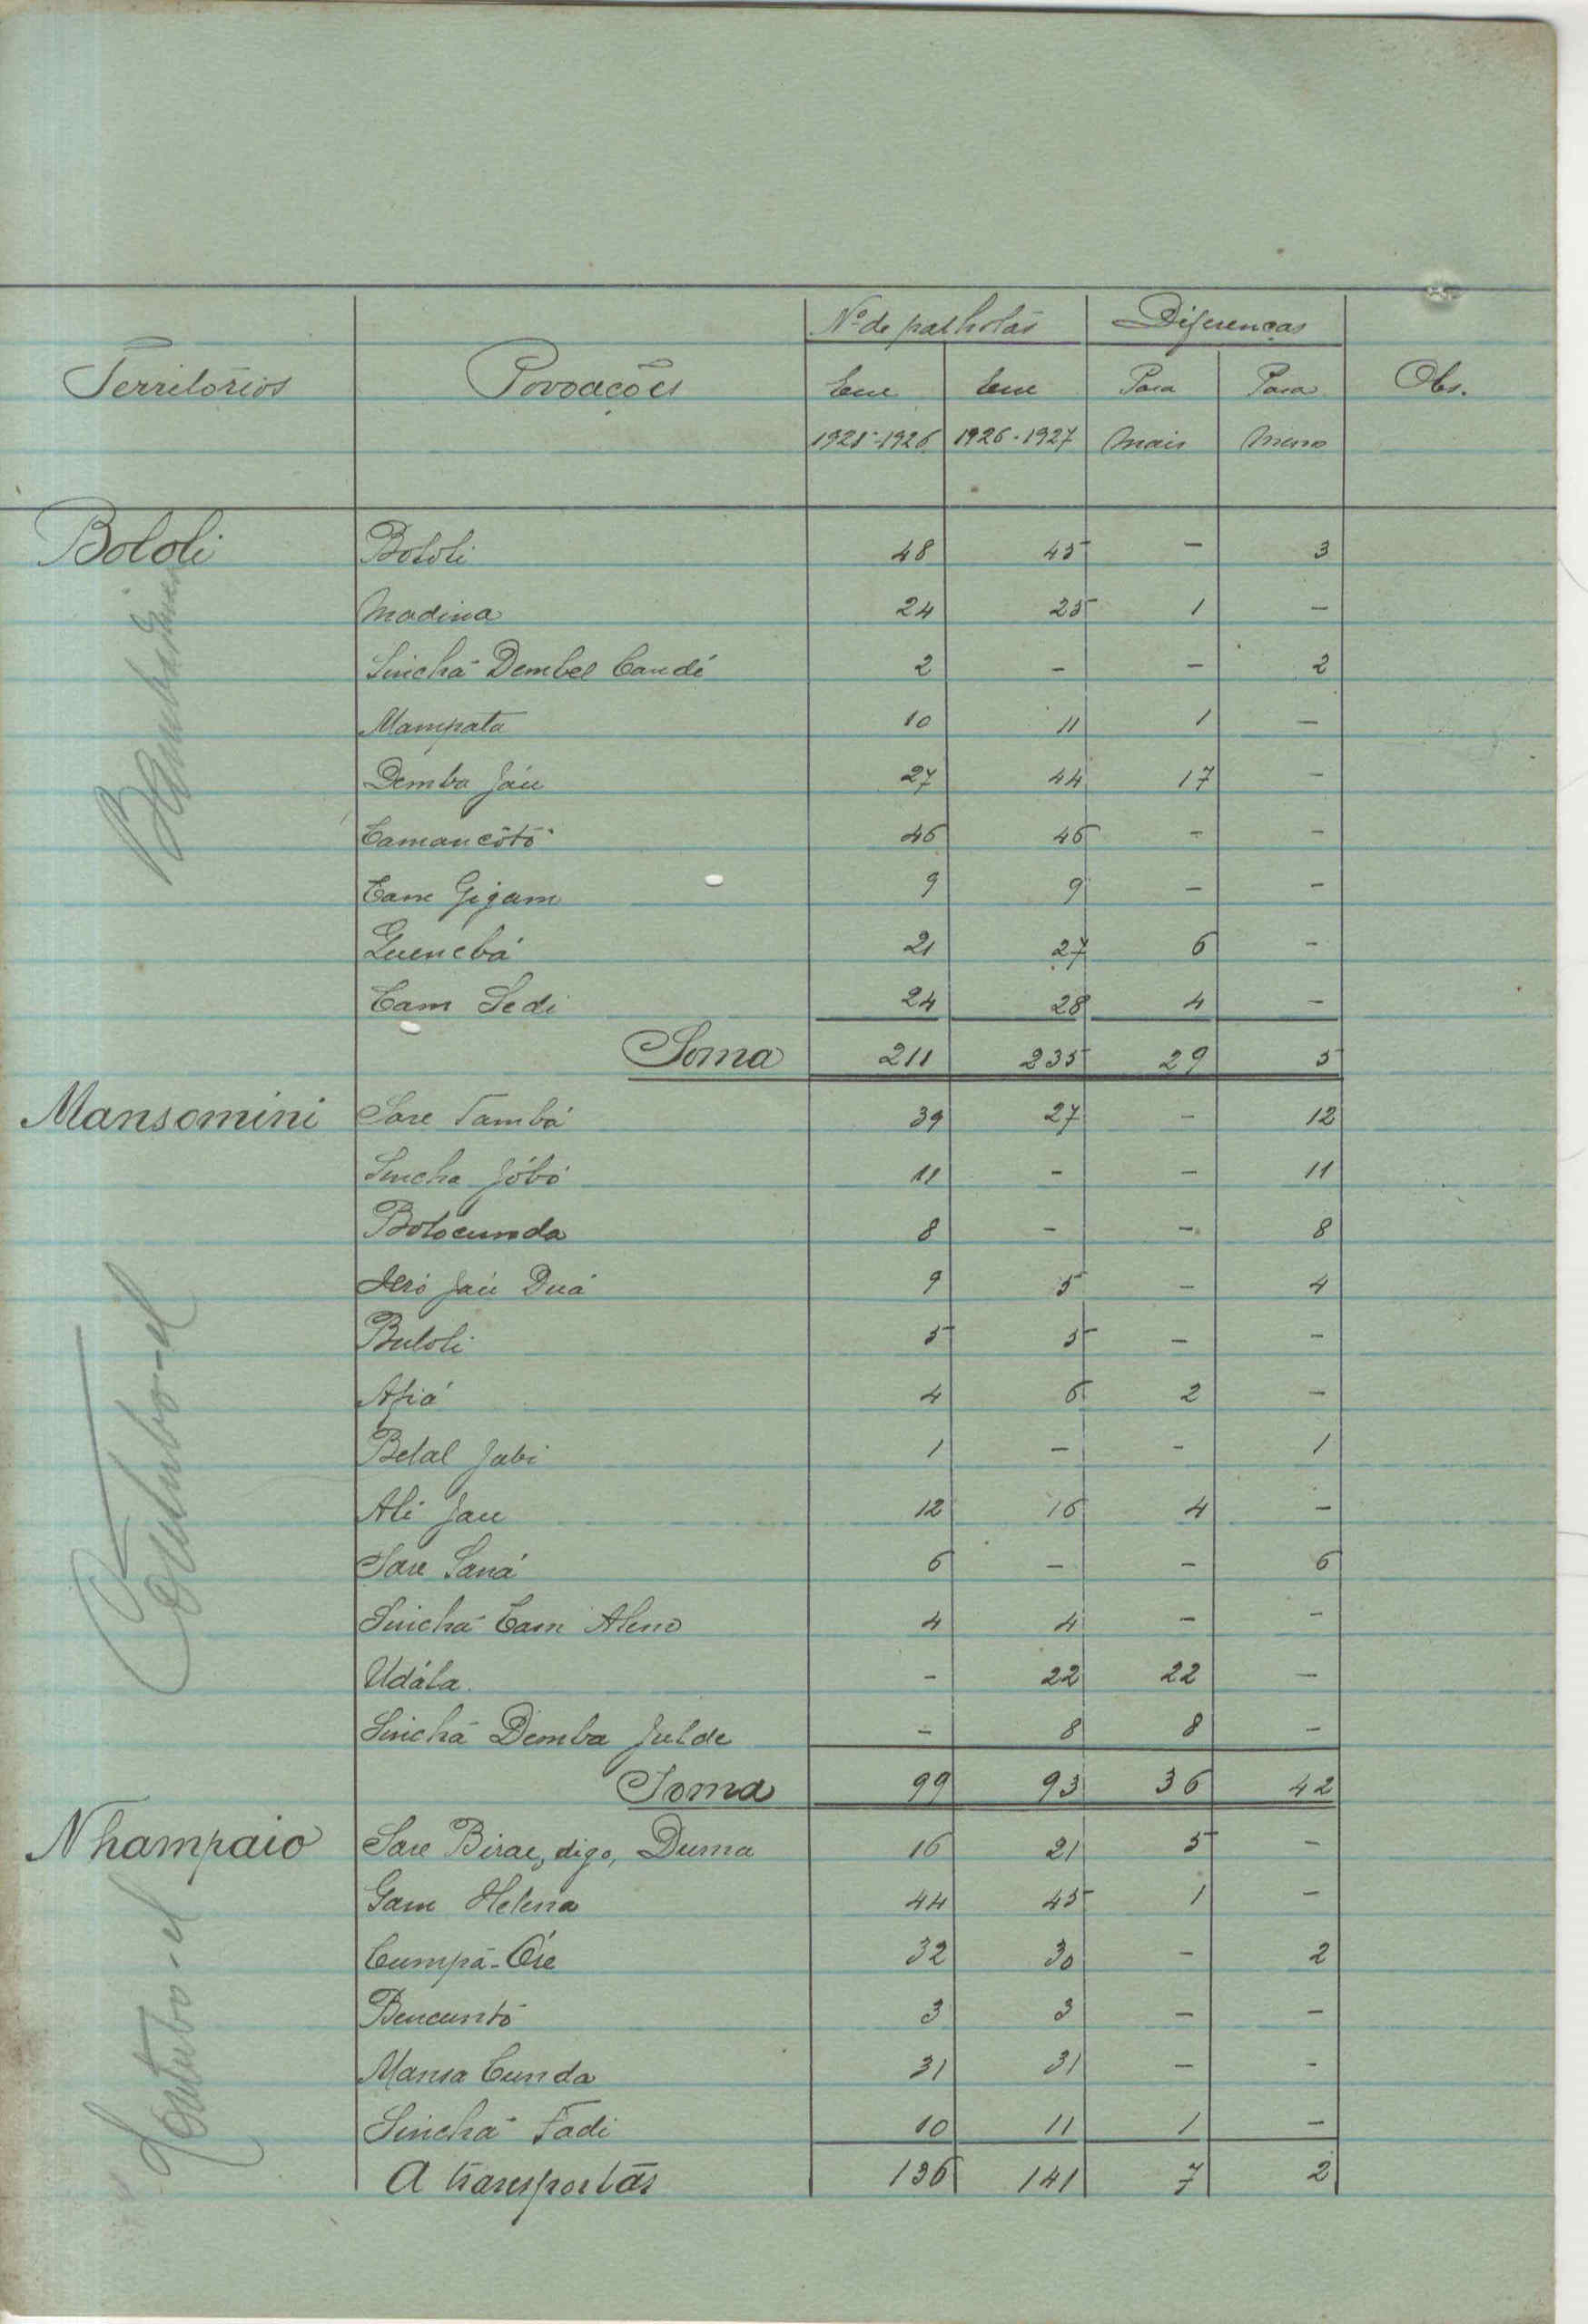 Nº de palhotas Diferenças
Territórios Povoações Em Em Para Para Obs.
1925-1926 1926-1927 mais meno
Bololi Bololi 48 45 - 3
Madina 24 25 1 -
Sinchá Dembel Candé 2 - - 2
Mampata 10 11 1 -
Demba Jáu 27 44 17 -
Camancótó 46 46 - -
Cam Gigam 9 9 - -
Quenebá 21 27 6 -
Cam Sedi 24 28 4 -
Soma 211 235 29 5
Mansomini Sare Tambá 39 27 - 12
Sincha Jóbó 11 - - 11
Bolocunda 8 - - 8
Iéró Jáu Duá 9 5 - 4
Buloli 5 5 - -
Afiá 4 6 2 -
Belal Jabi 1 - - 1
Ali Jau 12 16 4 -
Sare Saná 6 - - 6
Sinchá Cam Aleno 4 4 - -
Udála. - 22 22 -
Sinchá Demba Julde - 8 8 -
Soma 99 93 36 42
Nhampaio Sare Birae, digo, Duma 16 21 5 -
Gam Helena 44 45 1 -
Cumpá-Óre 32 30 - 2
Bencuntó 3 3 - -
Mansa Cunda 31 31 - -
Sinchá Fadi 10 11 1 -
A transportar 136 141 7 2